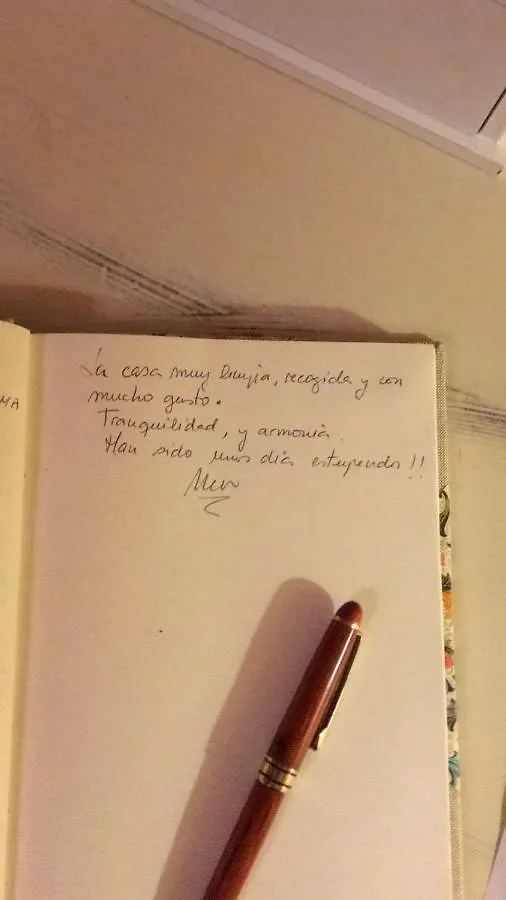 La casa muy limpia, recogida y con
mucho gusto.
Tranquilidad, y armonia.
Han sido unos dias estupendos!!
MA